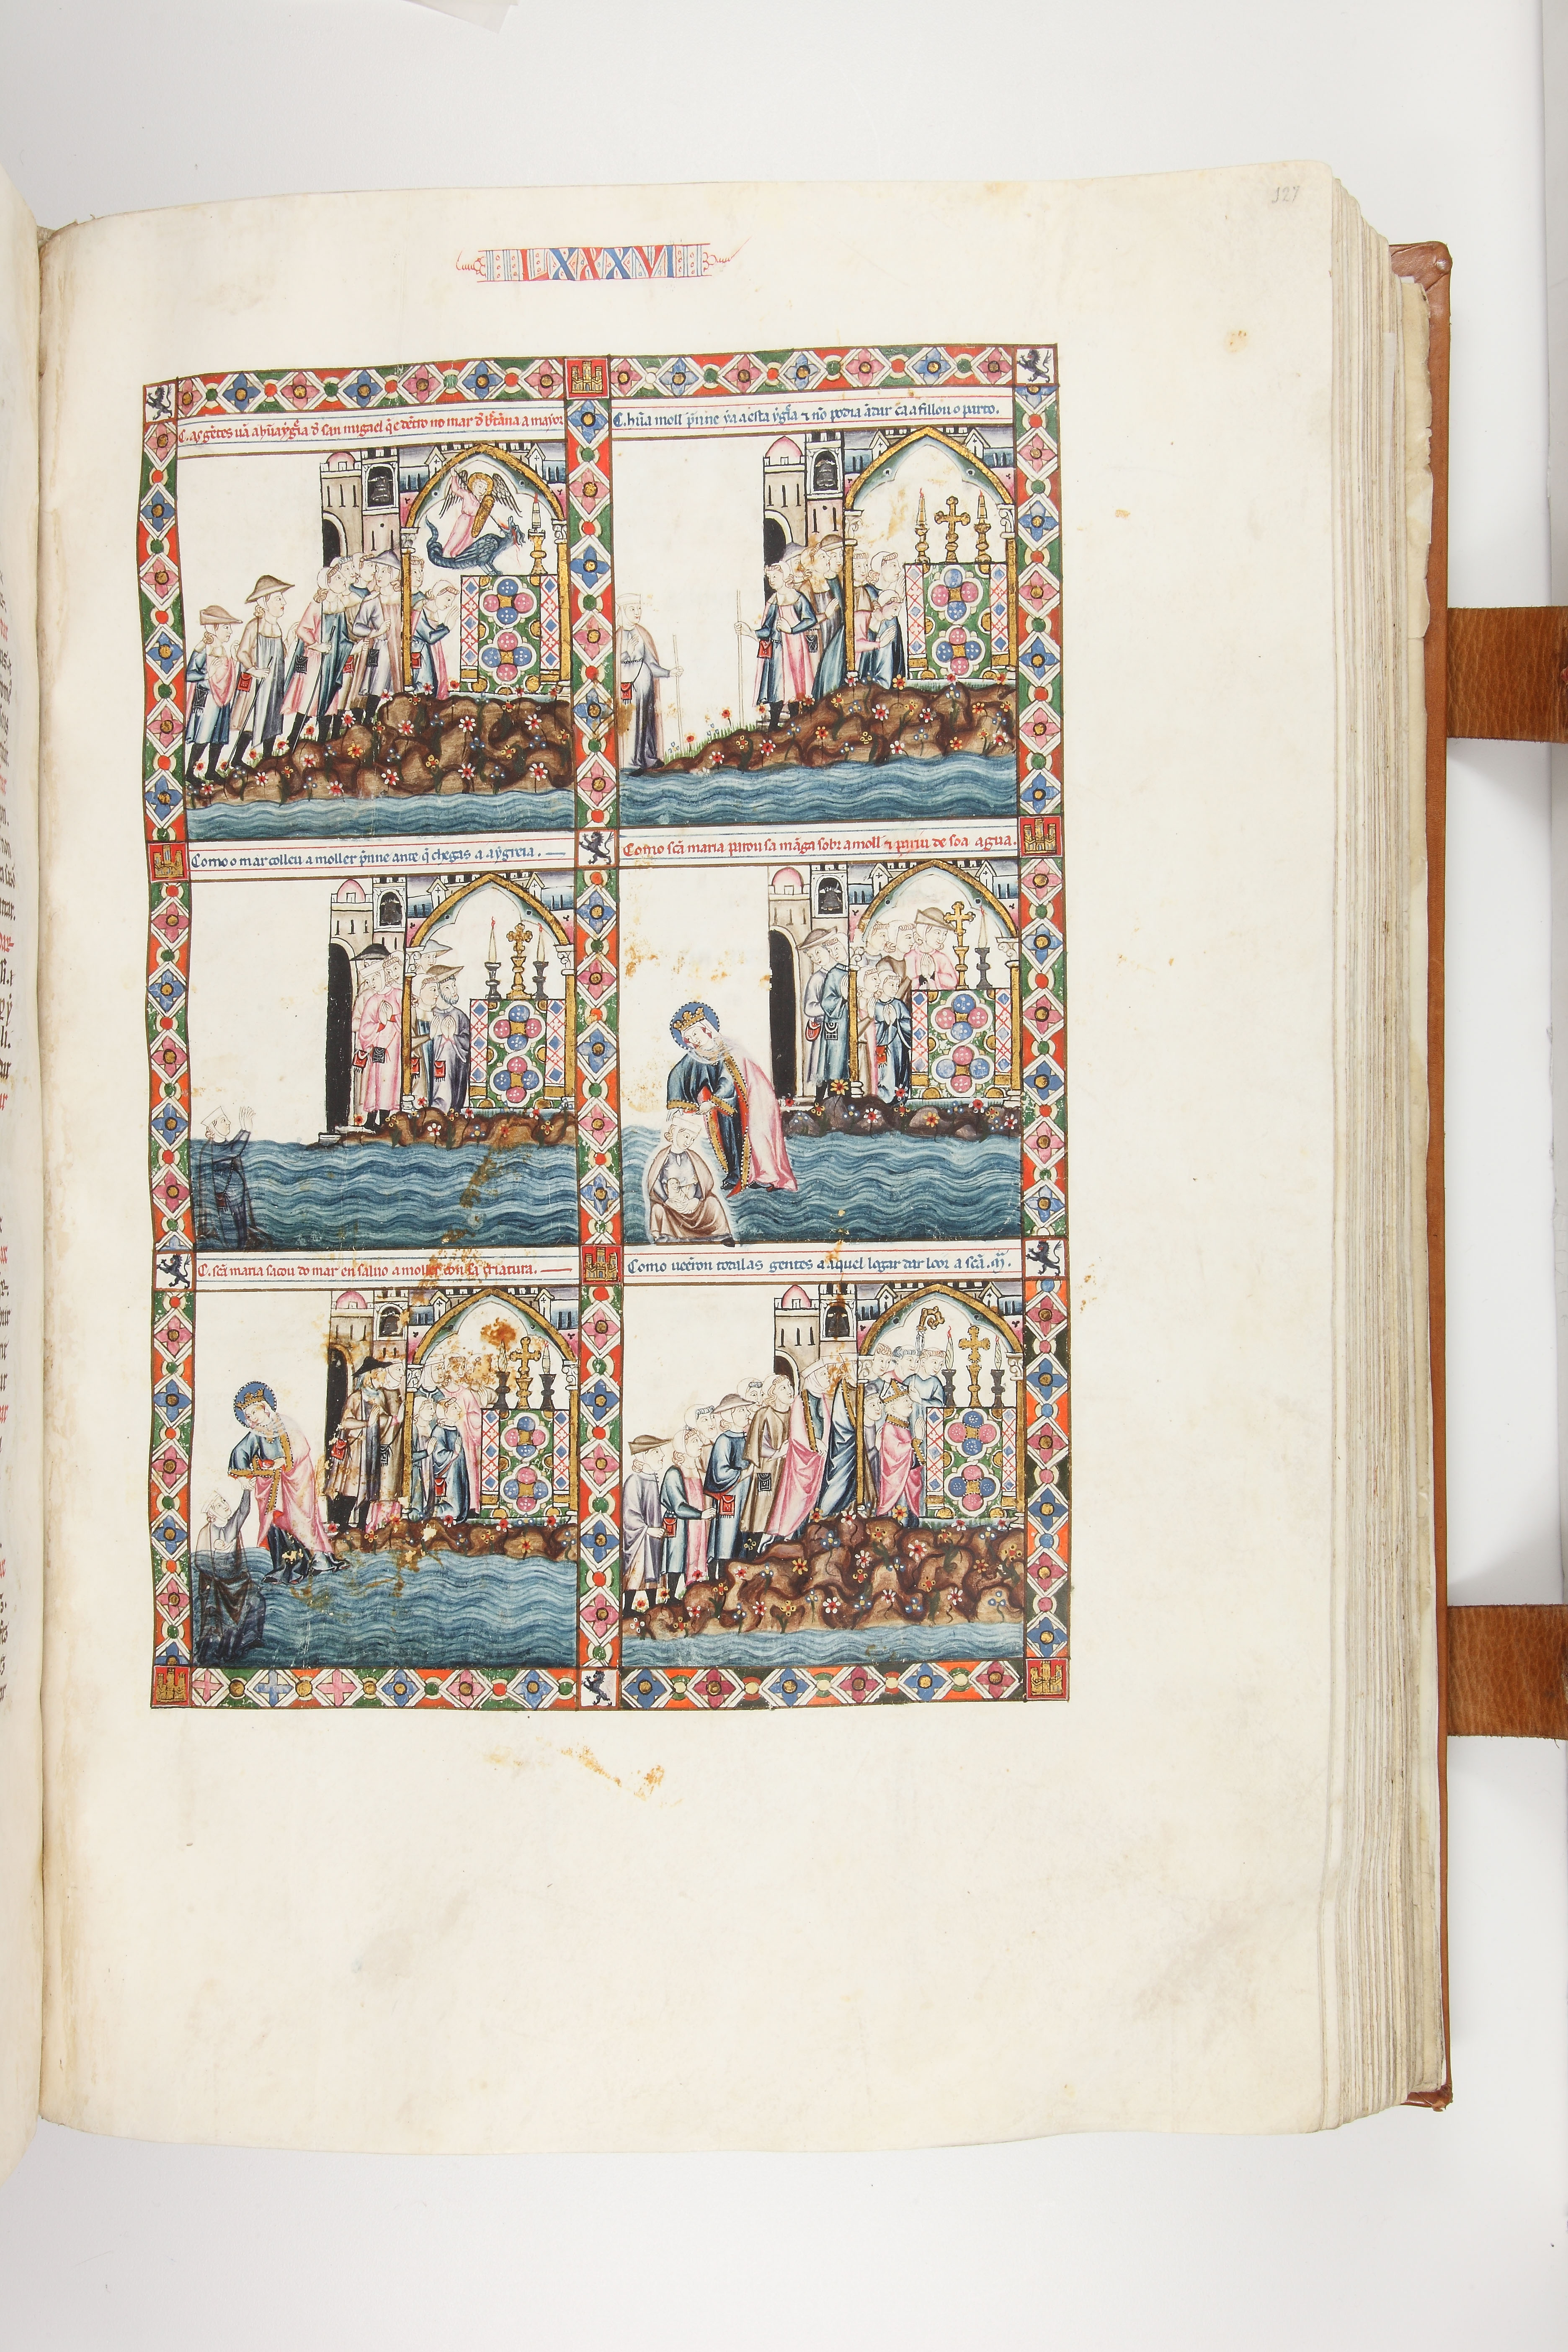 127
LXXXVI
C. as gẽtes uã a hũa ygr̃ia d̃ san miguel q̃ é dẽtro no mar d̃ bretãna a mayor
C. hũa moll̃ p̃nne ya a esta ygr̃a ⁊ nõ podia ãdar ca a fillou o parto.
Como o mar colleu a moller p̃nne ante q̃ chegas a aygreia.
Como scã maria parou sa mãga sobr̃ a moll̃ ⁊ pariu de soa agua.
C. scã maria sacou do mar en saluo a moller con sa criatura.
Como uẽeron todalas gentes a aquel logar dar loor a scã .m̃.